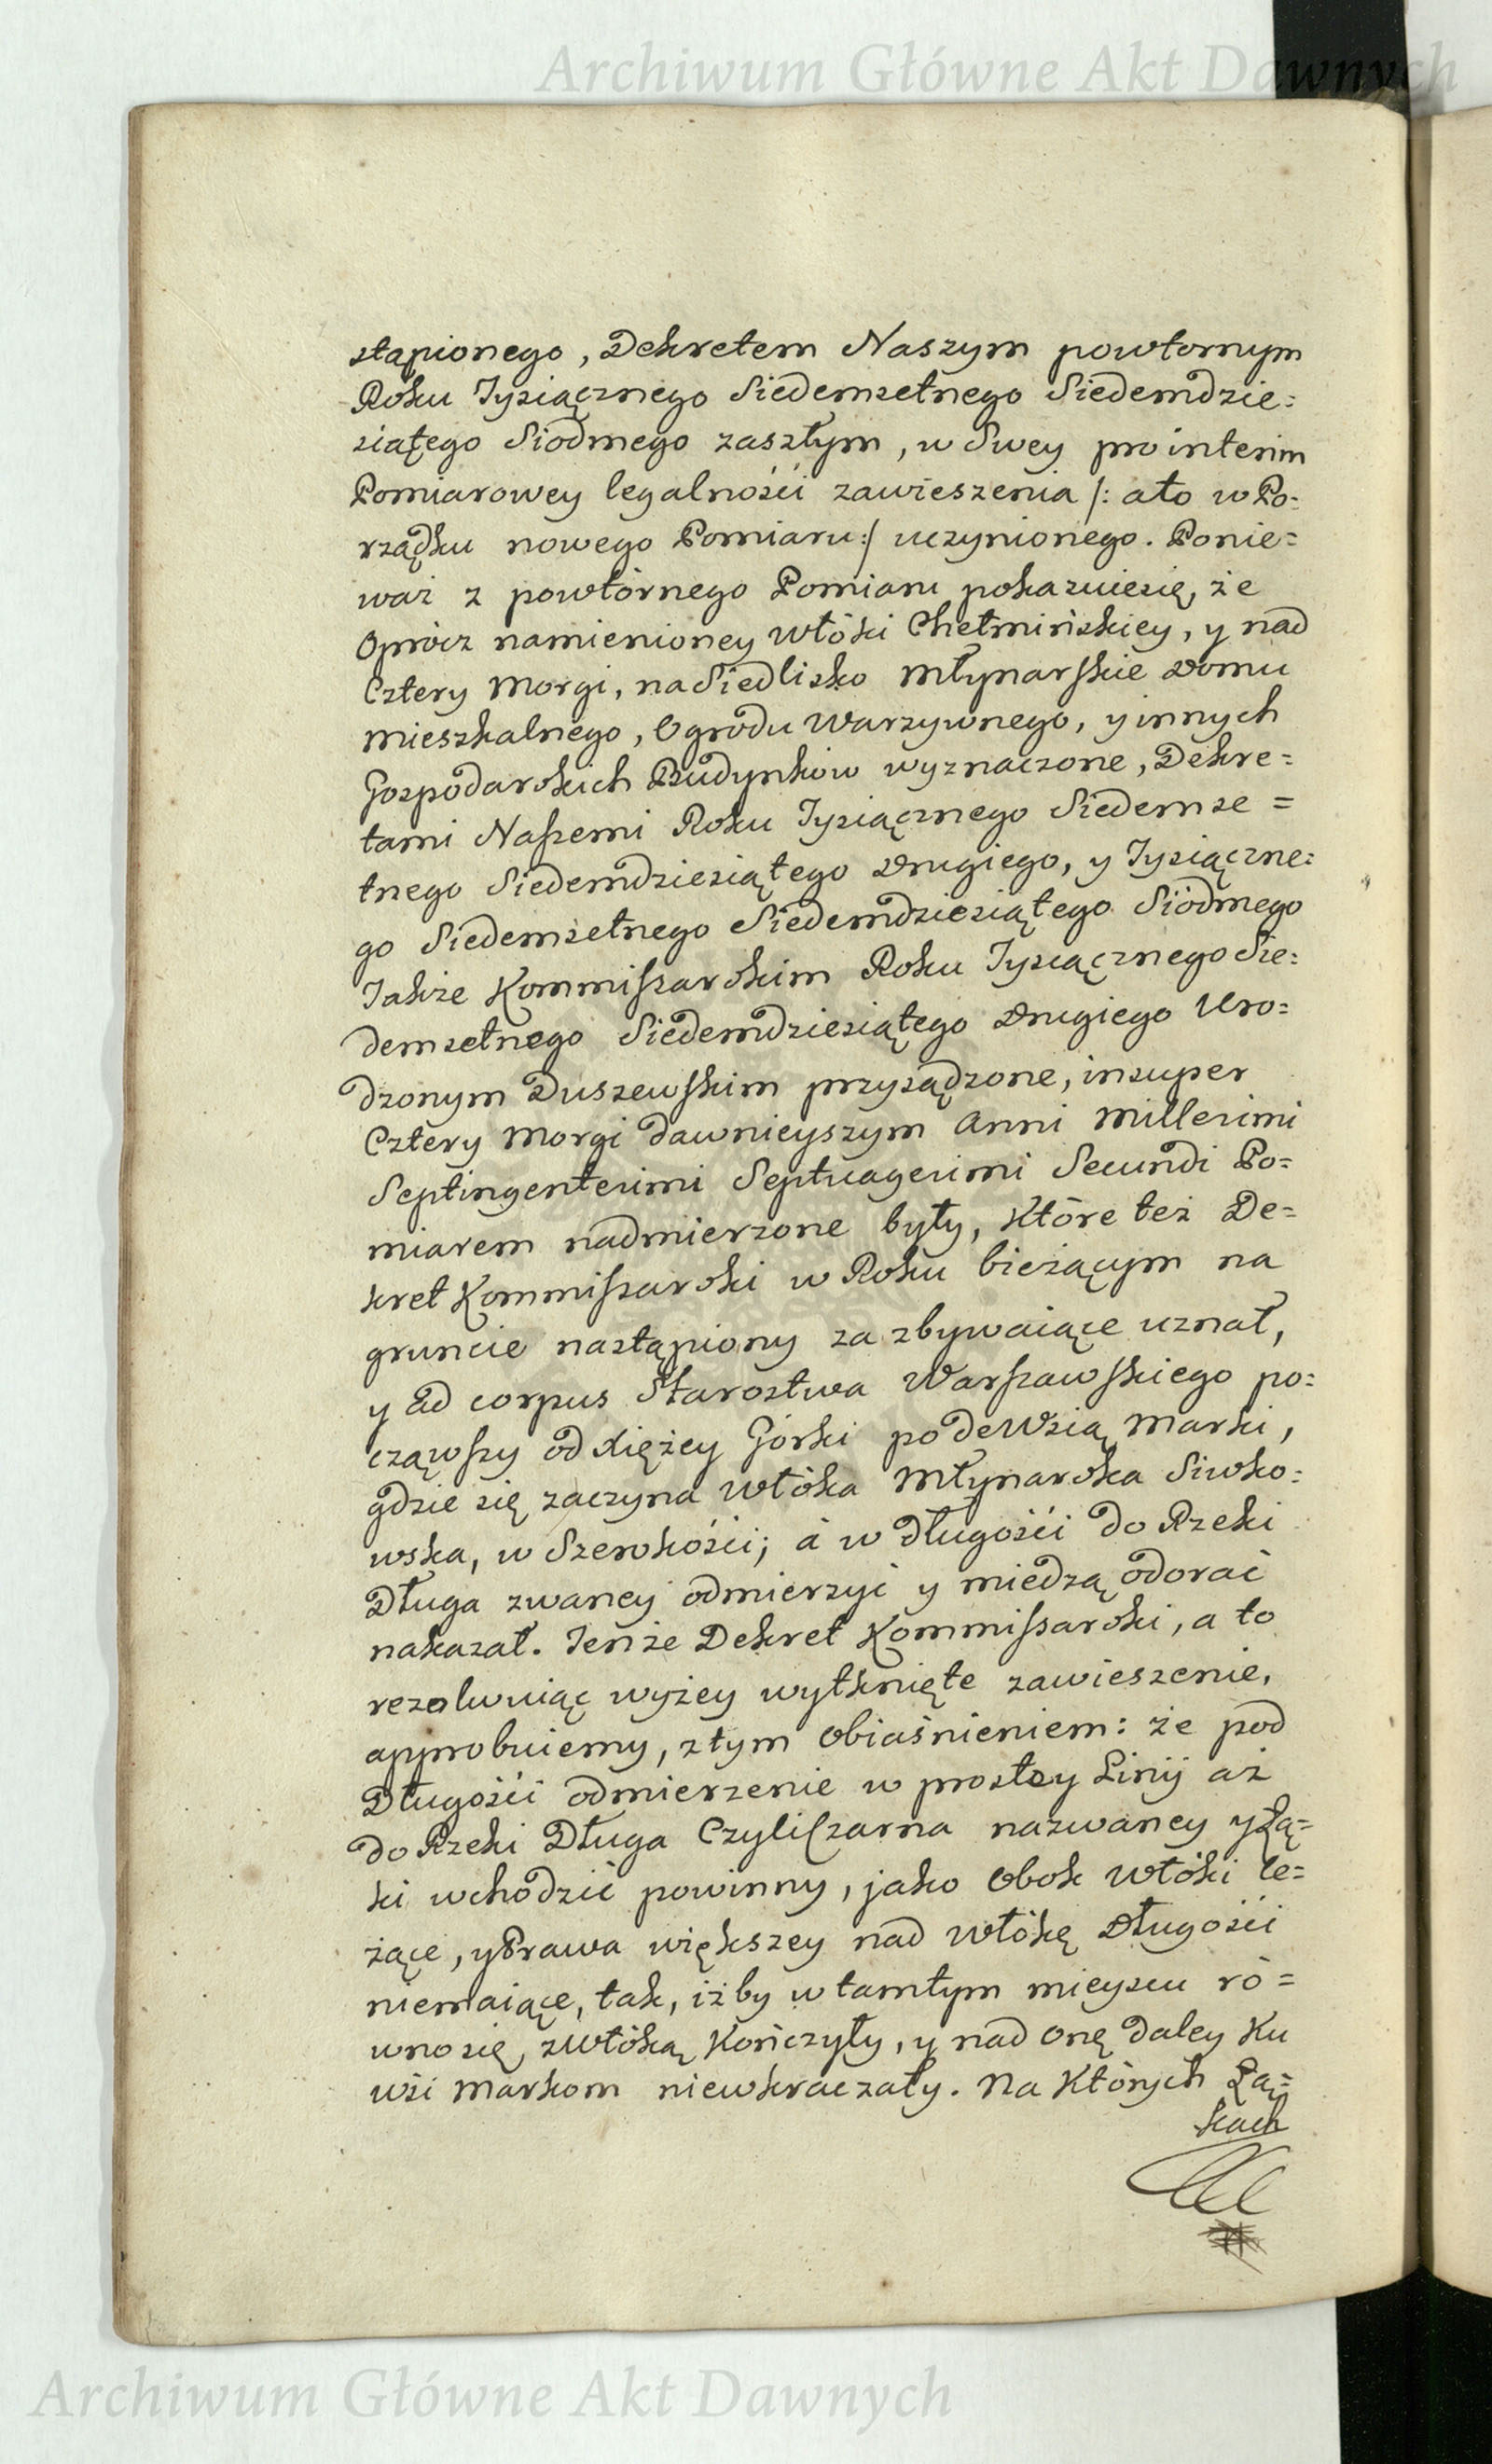 Archiwum Główne Akt Dawnych
stąpionego, Dekretem Naszym powtornym
Roku Tysiącznego Siedemsetnego Siedemdzie=
siątego Siodmego zaszłym, w Swey pro interim
Pomiarowey legalności zawieszenia /: a to w Po=
rządku nowego Pomiaru :/ uczynionego. Ponie=
waż z powtórnego Pomiaru pokazuie się, że
oprócz namienioney Włóki Chełmińskiey, y nad
Cztery Morgi, na Siedlisko Młynarskie Domu
mieszkalnego, Ogrodu Warzywnego, y innych
Gospodarskich Budynków wyznaczone, Dekre=
tami Naszemi Roku Tysiącznego Siedemse=
tnego Siedemdziesiątego Drugiego, y Tysiączne=
go Siedemsetnego Siedemdziesiątego Siódmego
Takze Kommissarskim Roku Tysiącznego Sie=
demsetnego Siedemdziesiątego Drugiego Uro=
dzonym Duszewskim przysądzone, insuper
Cztery Morgi dawnieyszym Anni Millesimi
Septingentesimi Septuagesimi Secundi Po=
miarem nadmierzone były, które też De=
kret Kommissarski w Roku bieżącym na
gruncie nastąpiony za zbywaiące uznał,
y ad corpus Starostwa Warszawskiego po=
cząwszy od Xiężey Górki pode Wsią Marki,
gdzie się zaczyna Włóka Młynarska Siwko=
wska, w Szerokości; á w długości do Rzeki
Długa zwaney odmierzyć y miedzą odorać
nakazał. Tenże Dekret Kommissarski, a to
rezolwuiąc wyżey wytknięte zawieszenie,
approbuiemy, z tym obiaśnieniem: że pod
Długości odmierzenie w prostey Linij aż
do Rzeki Długa Czyli Czarna nazwaney y Łą=
ki wchodzić powinny, jako obok Włóki le=
żące, y Prawa większey nad Włókę Długości
niemaiące, tak, iżby w tamtym mieyscu ró=
wno się z Włóką kończyły, y nad onę daley ku
wśi Markom niewkraczały. Na których Łą=
kach
Archiwum Główne Akt Dawnych